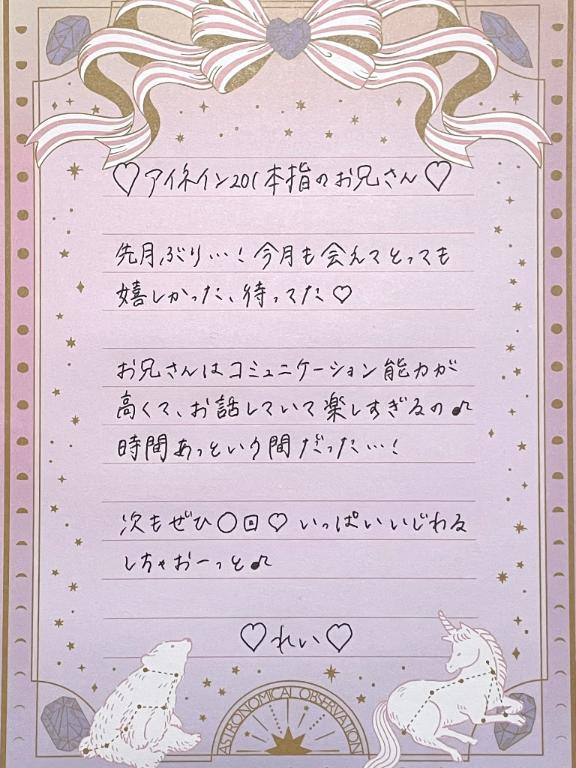 ♡アイネイン201本指のお兄さん♡
先月ぶり…！今月も会えてとっても
嬉しかった、待ってた♡
お兄さんはコミュニケーション能力が
高くて、お話していて楽しすぎるの♪
時間あっという間だった…！
次もぜひ〇回♡いっぱいいじわる
しちゃおーっと♪
♡れい♡
ASTRONOMICAL OBSERVATION